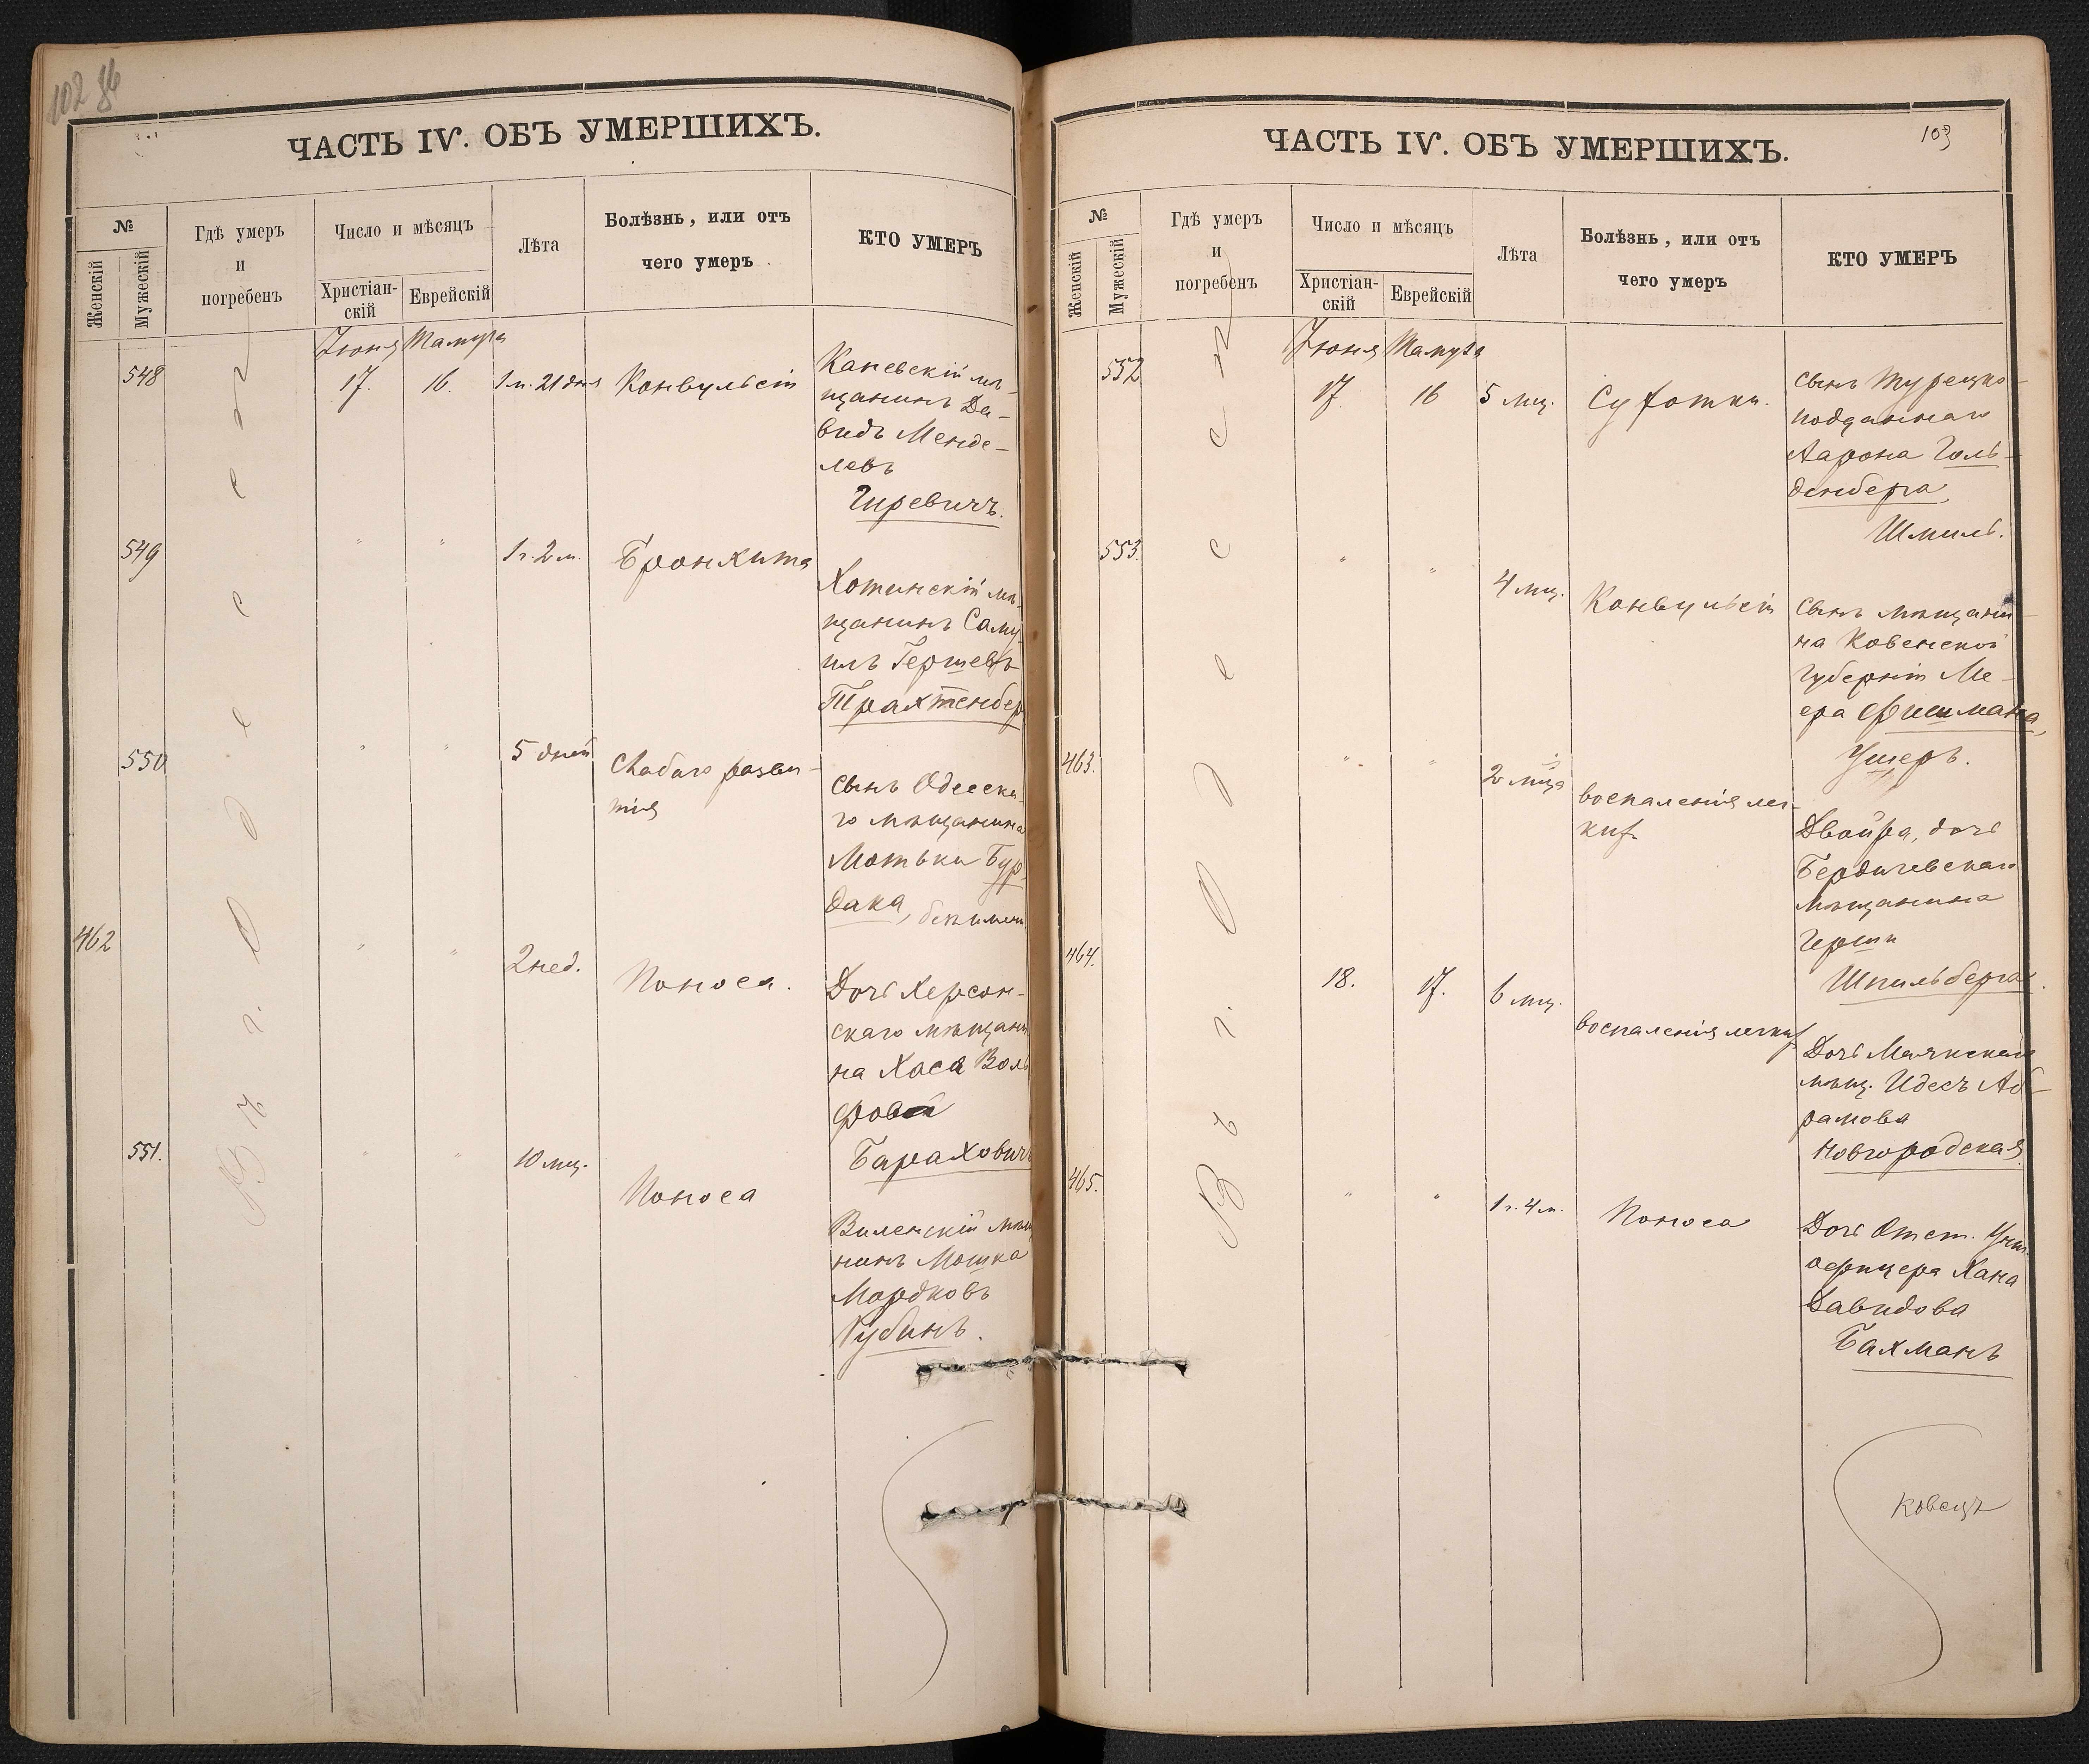 102 86
ЧАСТЬ IV. ОБЪ УМЕРШИХЪ.
№
Женскій
Мужескій
Гдѣ умеръ
и
погребенъ
Число и мѣсяцъ
Христіан-
скій
Еврейскій
Лѣта
Болѣзнь, или отъ
чего умеръ
КТО УМЕРЪ
Въ г. Одессѣ
Іюня Тамуза
548 17. 16. 1 м. 21 дня Конвульсіи
Каневскій мѣ-
щанинъ Да-
видъ Менде-
левъ
Гиревичъ.
549 " " 1 г. 2 м. Бронхита
Хотинскій мѣ-
щанинъ Саму-
илъ Гершевъ
Трахтенбер
550 " " 5 дней Слабаго разви-
тія
Сынъ Одесска-
го мѣщанина
Мотьки Бур-
дака, безъимен.
462 " " 2 нед. Поноса.
Дочь Херсон-
скаго мѣщани
на Хаса Воль
фова
Бараховичъ
551. " " 10 мц. Поноса
Виленскій мѣщ
нинъ Мошка
Мордковъ
Рубинъ.
103
ЧАСТЬ IV. ОБЪ УМЕРШИХЪ.
№
Женскій
Мужескій
Гдѣ умеръ
и
погребенъ
Число и мѣсяцъ
Христіан-
скій
Еврейскій
Лѣта
Болѣзнь, или отъ
чего умеръ
КТО УМЕРЪ
Въ г. Одессѣ
Іюня Тамуза
552 17. 16 5 мц. Сухотки.
Сынъ Турецко-
подданнаго
Аарона Голь-
денберга,
Шмиль.
553. " " 4 мц. Конвульсіи
Сынъ мѣщани-
на Ковенской
Губерніи Ме-
ера Фишмана,
Ушеръ.
463. " " 2 мца воспаленія лег-
кихъ
Двойра, дочь
Бердичевскаго
мѣщанина
Герша
Шпильберга.
464. 18. 17. 6 мц. воспаленія легких
Дочь Маякскаго
мѣщ. Идесъ Аб-
рамова
Новгородская.
465. " " 1 г. 4 м. Поноса
Дочь Отст. Унт.
офицера Хана
Давидова
Бахманъ